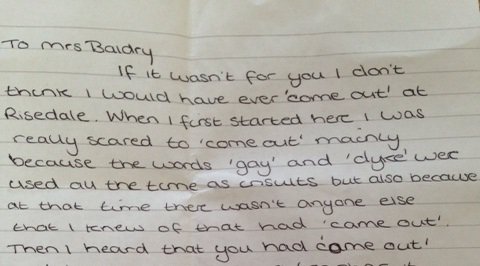 To Mrs Baldry
If it wasn't for you I don't
think I would have ever 'come out' at
Risedale. When I first started here I was
really scared to 'come out' mainly
because the words 'gay' and 'dyke' wer
used all the time as insults but also because
at that time there wasn't anyone else
that I knew of that had 'came out'.
Then I heard that you had come out'